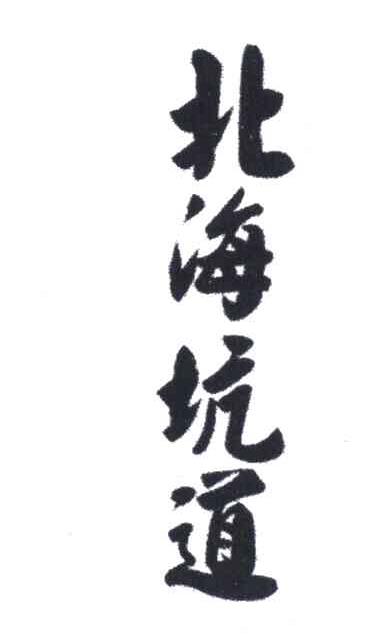 北海坑道